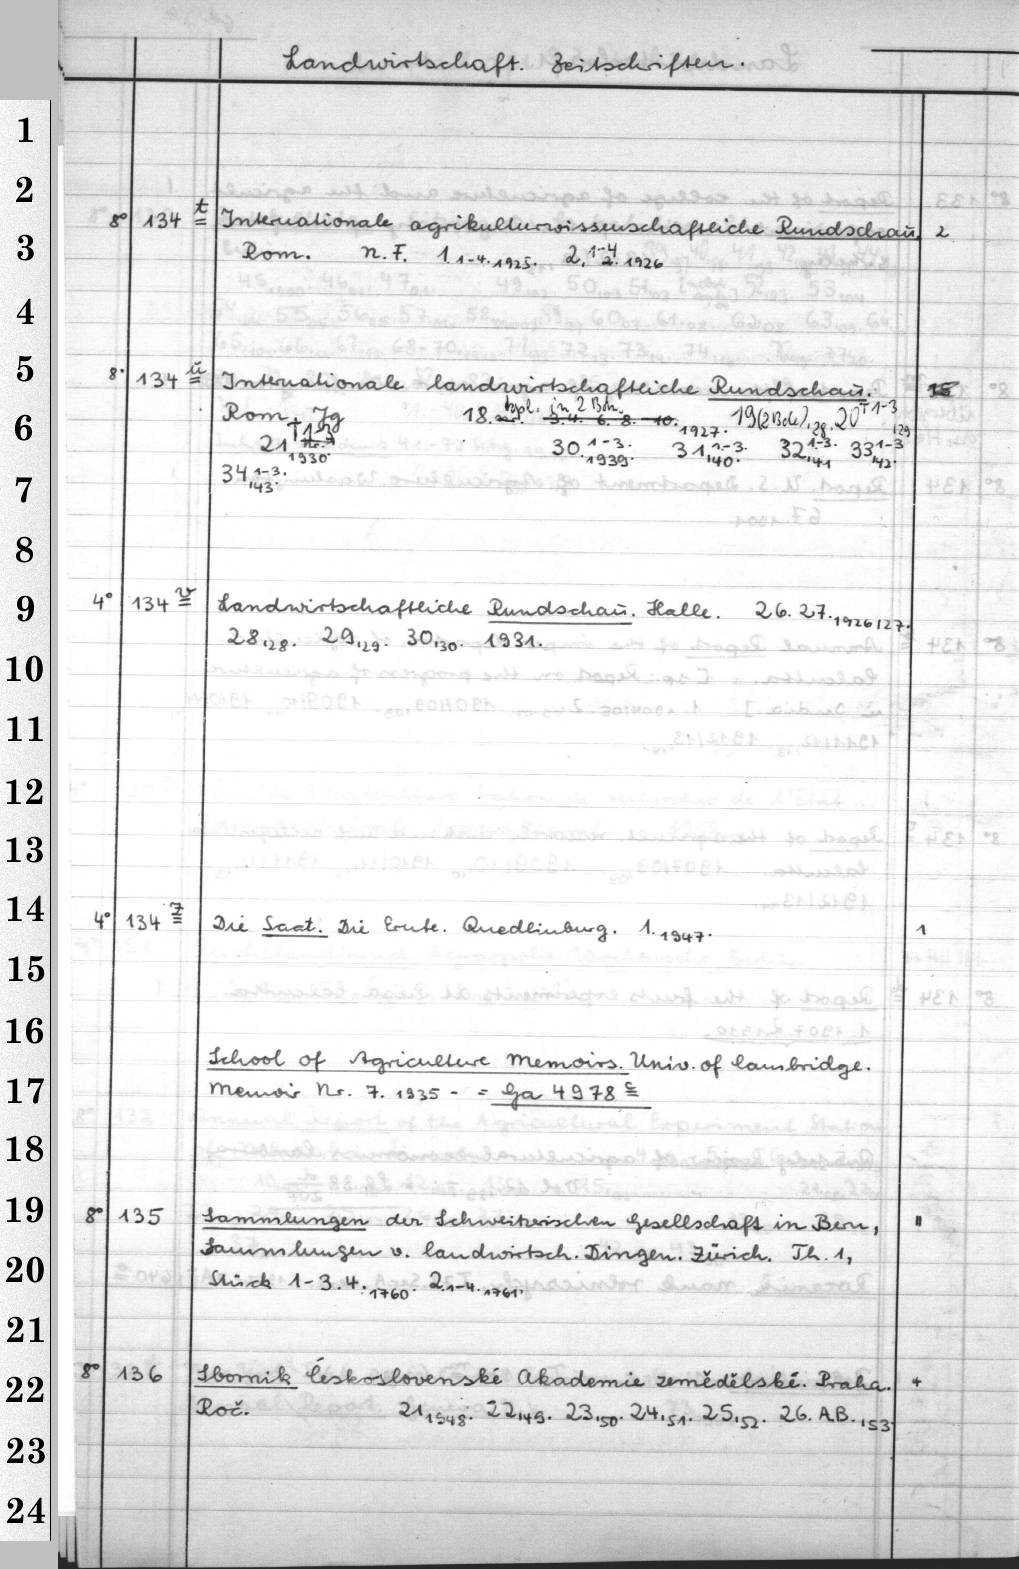 Landwirtschaft. Zeitschriften.
1
2
8° 134 t Internationale agrikulturwissenschaftliche Rundschau. 2
3
Rom. n.F. 1.1-4.1925. 2.1-4.1926
4
5
8° 134 u Internationale landwirtschaftliche Rundschau.
6
Rom. Jg 18. kpl. in 2 Bdn. 3. 4. 6. 8. 10. 1927. 19(2Bde),28. 20 T 1-3,29
21 1930. 30.1-3.1939. 31.1-3.,40. 32.1-3.,41 33.1-3,42.
7
34.1-3.,43.
8
9
4° 134 v Landwirtschaftliche Rundschau. Halle. 26. 27.1926/27.
10
28,28. 29,29. 30,30. 1931.
11
12
13
14
4° 134 z Die Saat. Die Ernte. Quedlinburg. 1.1947. 1
15
16
School of Agriculture Memoirs. Univ. of Cambridge.
17
Memoir Nr. 7. 1935 - = Ga 4978 c
18
19
8° 135 Sammlungen der Schweitzerischen Gesellschaft in Bern, "
20
Sammlungen v. landwirtsch. Dingen. Zürich. Th. 1,
Stück 1-3. 4.1760. 2.1-4.1761.
21
22
8° 136 Sborník Československé Akademie zemědělské. Praha. +
Roč. 21,1948. 22,49. 23,50. 24,51. 25,52. 26. A.B.,53
23
24